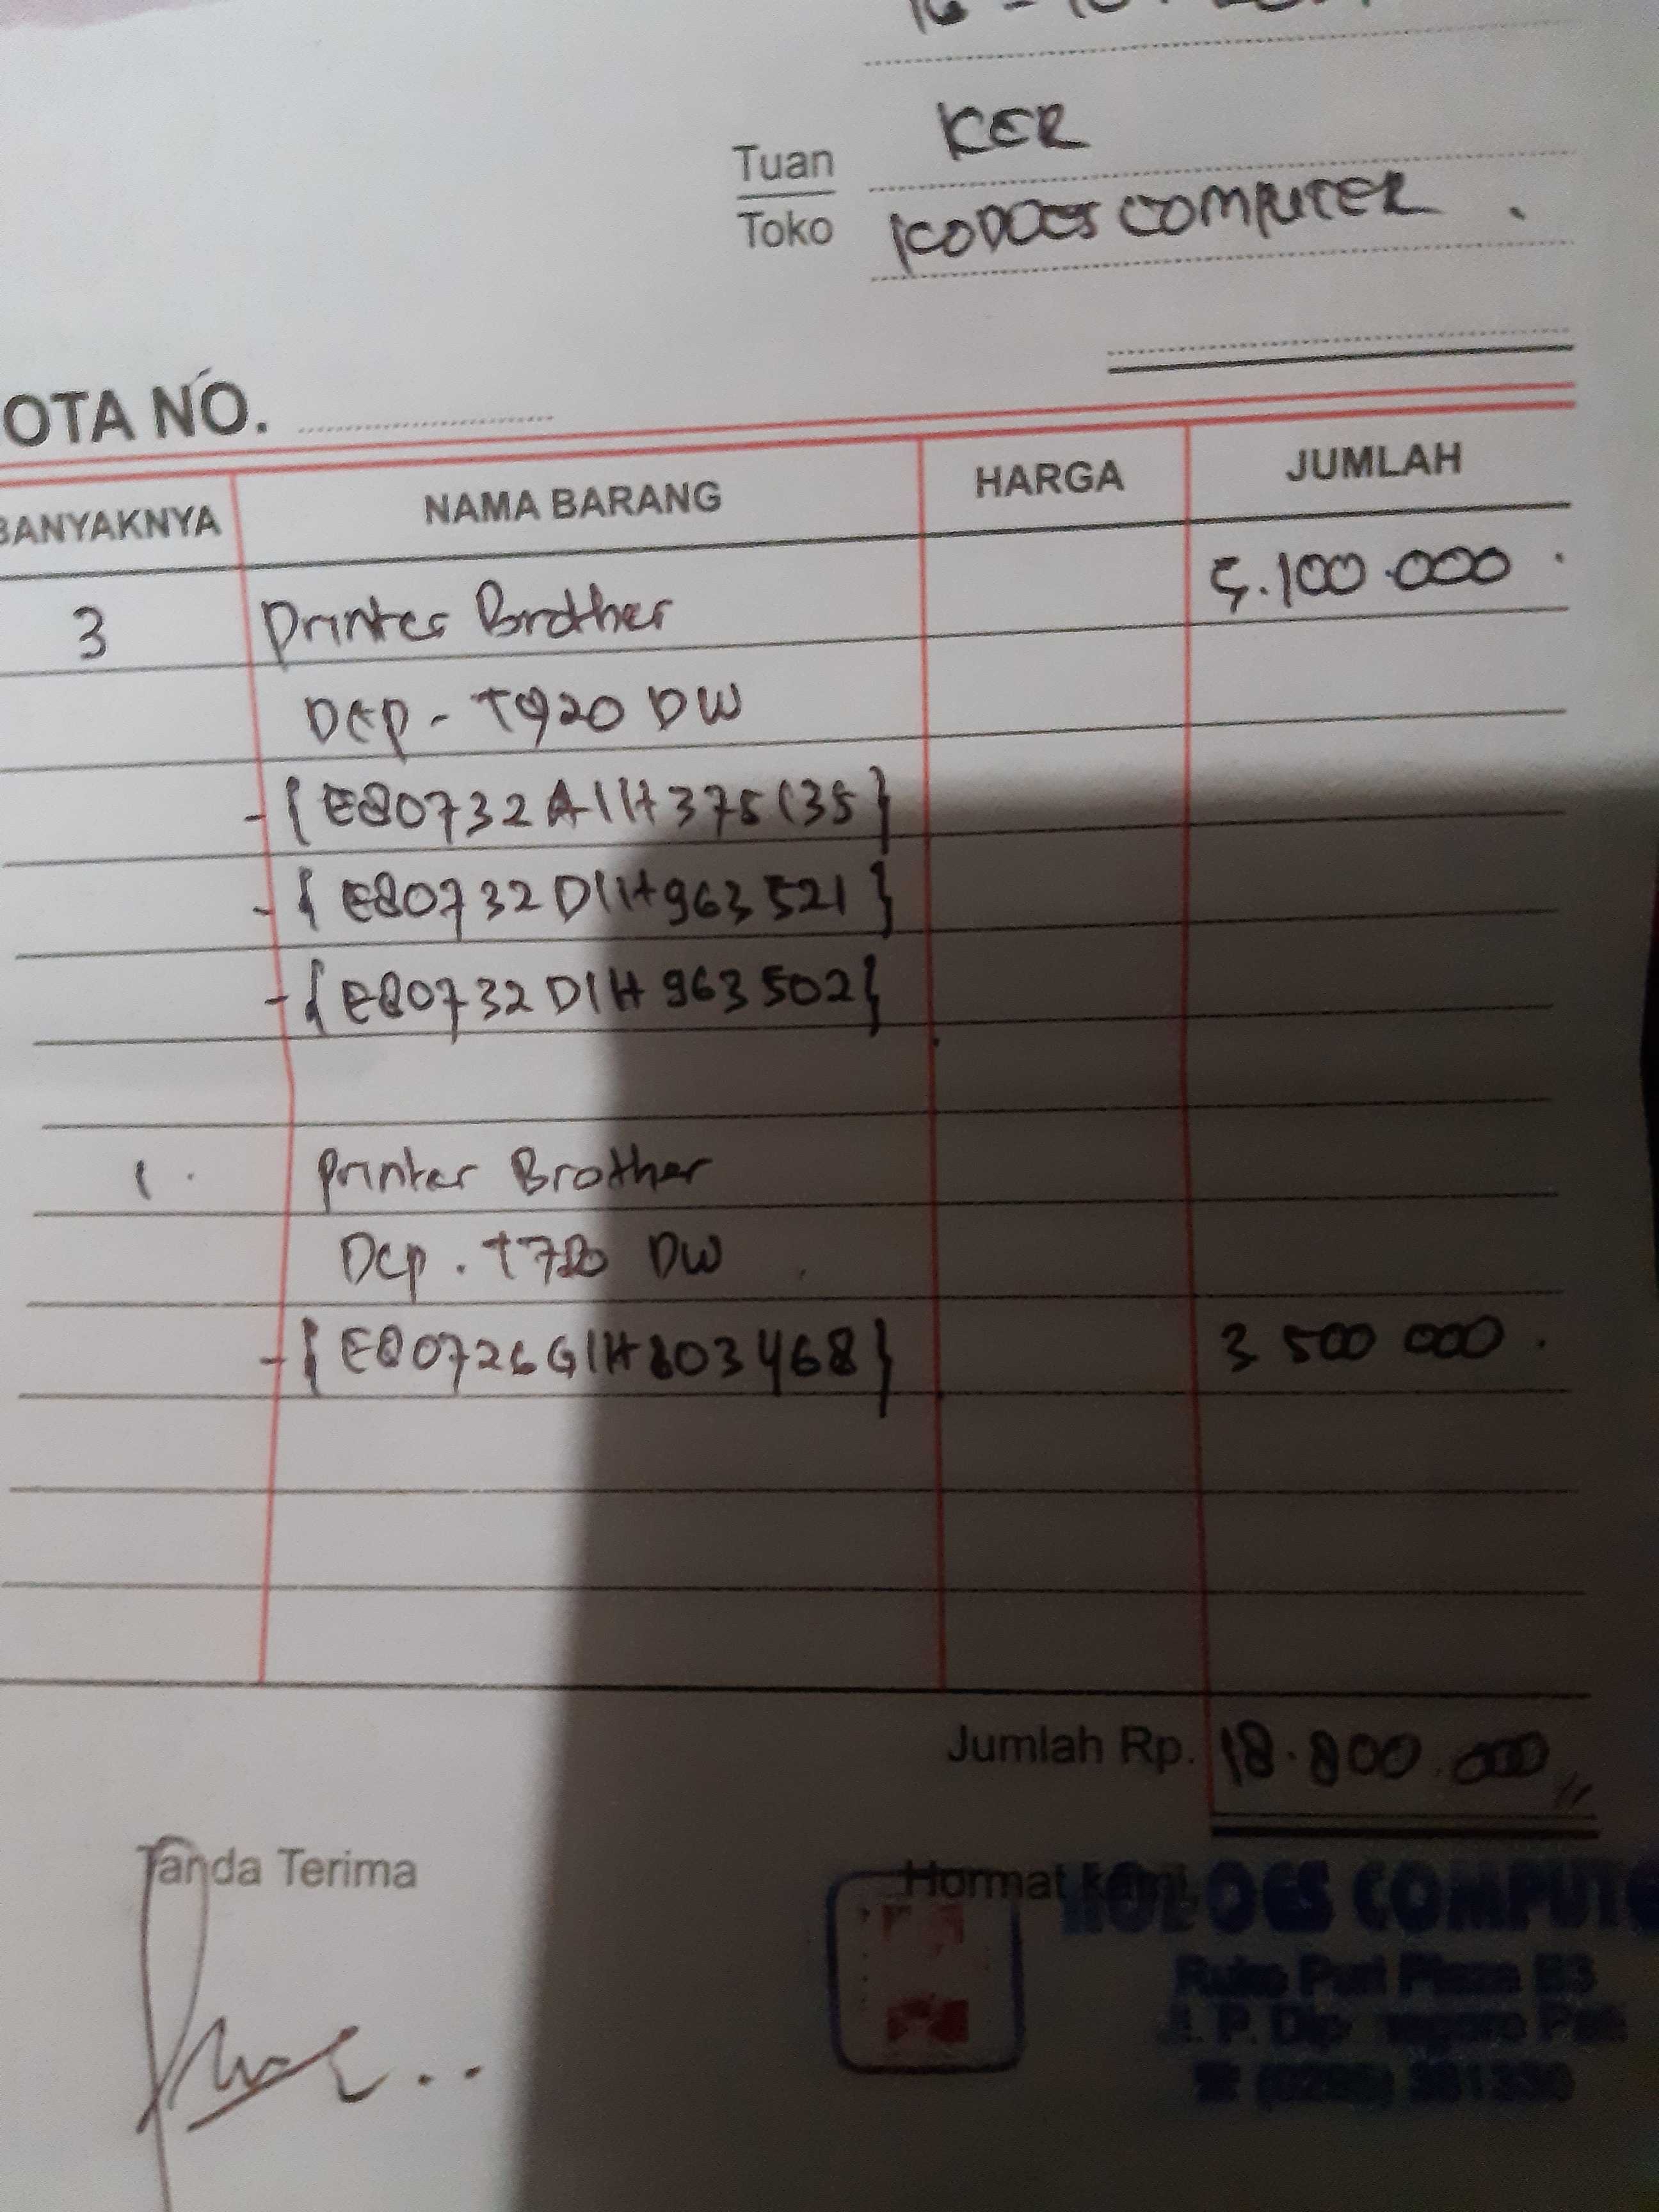 KER
Tuan
Toko
KODOGS COMPUTER
OTA NO.
BANYAKNYA NAMA BARANG HARGA JUMLAH
3 Printer Brother 5.100.000
DCP - T920 DW
- {E80732A1H375135}
- {E80732D1H963521}
- {E80732D1H963502}
1. Printer Brother
DCP. T720 DW
- {E80726G1H603468} 3 500 000.
Jumlah Rp. 18.800.000
Tanda Terima Hormat kami,
COMPUTE
Ruko Puri Plaza B3